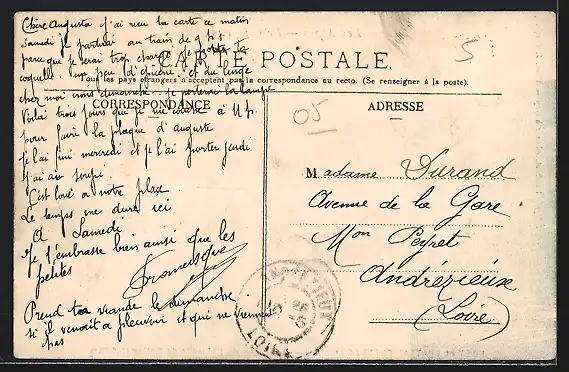 Chère Augusta j'ai reçu la carte ce matin
Samedi je partirai au train de 4 h
parce que je serai trop chargé je porte ta
coquelle un peu d'épicerie et du linge
CARTE POSTALE
Tous les pays étrangers n'acceptent pas la correspondance au recto. (Se renseigner à la poste).
chez moi nous demanche je porterai la lampe
CORRESPONDANCE
Voilà trois jours que je me couche à 11 h
pour faire la plaque d'auguste
je l'ai fini mercredi et je l'ai porter jeudi
j'ai au
C'est loué a notre place
Le temps me dure ici
A Samedi
Je t'embrasse bien ainsi que les
petites
Prend ta viande le dimanche
si il venait a pleuvoir et qui ne viennent
pas
5
05
ADRESSE
Madame Durand
Avenue de la Gare
Mon Peyret
Andrézieux
(Loire)
LOIRE